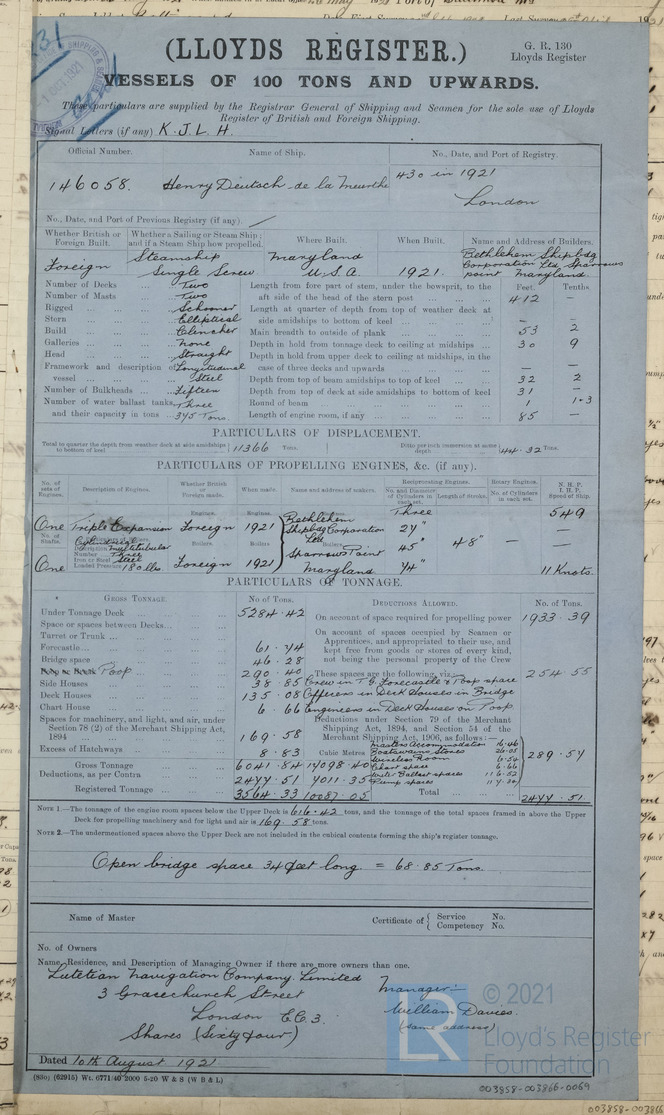 (LLOYDS REGISTER.)
G. R. 130
Lloyds Register
VESSELS OF 100 TONS AND UPWARDS.
These particulars are supplied by the Registrar General of Shipping and Seamen for the sole use of Lloyds
Register of British and Foreign Shipping.
Signal Letters (if any) K.J.L.H.
Official Number. Name of Ship. No., Date, and Port of Registry.
146058. Henry Deutsch de la Meurthe 430 in 1921
London
No., Date, and Port of Previous Registry (if any).
Whether British or Foreign Built. Whether a Sailing or Steam Ship; and if a Steam Ship how propelled. Where Built. When Built. Name and Address of Builders.
Foreign Steamship Single Screw Maryland U.S.A. 1921. Bethlehem Shipbdg Corporation Ltd Sparrows point Maryland
Number of Decks Two Length from fore part of stem, under the bowsprit, to the aft side of the head of the stern post 412 —
Number of Masts Two
Rigged Schooner Length at quarter of depth from top of weather deck at side amidships to bottom of keel — —
Stern Elliptical
Build Clencher Main breadth to outside of plank 53 2
Galleries none Depth in hold from tonnage deck to ceiling at midships 30 9
Head Straight Depth in hold from upper deck to ceiling at midships, in the case of three decks and upwards — —
Framework and description of vessel Longitudinal Steel Depth from top of beam amidships to top of keel 32 2
Number of Bulkheads Fifteen Depth from top of deck at side amidships to bottom of keel 31 —
Number of water ballast tanks, Three Round of beam 1 1·3
and their capacity in tons 375 Tons. Length of engine room, if any 85 —
PARTICULARS OF DISPLACEMENT.
Total to quarter the depth from weather deck at side amidships to bottom of keel 11366 Tons. Ditto per inch immersion at same depth 44.32 Tons.
PARTICULARS OF PROPELLING ENGINES, &c. (if any).
No. of sets of Engines. Description of Engines. Whether British or Foreign made. When made. Name and address of makers. Reciprocating Engines. Rotary Engines. N. H. P.
No. and Diameter of Cylinders in each set. Length of Stroke. No. of Cylinders in each set. I. H. P. Speed of Ship.
One Triple Expansion Engines. Foreign Engines. 1921 Engines. Bethlehem Shipbdg Corporation Ltd Sparrows Point Maryland Three 27" 45" 74" 48" — 549
No. of Shafts. Description Cylindrical Multitubular Boilers.
Number Three
Iron or Steel Steel
One Loaded Pressure 180 lbs Foreign 1921 11 Knots.
PARTICULARS OF TONNAGE.
GROSS TONNAGE. No. of Tons. DEDUCTIONS ALLOWED. No. of Tons.
Under Tonnage Deck 5284.42 On account of space required for propelling power 1933.39
Space or spaces between Decks
Turret or Trunk On account of spaces occupied by Seamen or Apprentices, and appropriated to their use, and kept free from goods or stores of every kind, not being the personal property of the Crew
Forecastle 61.74
Bridge space 46.28
Poop 290.40 These spaces are the following, viz.: 254.55
Side Houses 38.85 Crew in T.G. Forecastle & Poop space
Deck Houses 135.08 Officers in Deck Houses in Bridge
Chart House 6.66 Engineers in Deck Houses on Poop
Spaces for machinery, and light, and air, under Section 78 (2) of the Merchant Shipping Act, 1894 169.58 Deductions under Section 79 of the Merchant Shipping Act, 1894, and Section 54 of the Merchant Shipping Act, 1906, as follows:—
Excess of Hatchways 8.83 Cubic Metres Masters Accommodation 16.46
Boatswains Stores 26.05
Gross Tonnage 6041.84 17098.40 Wireless Room 6.54 289.57
Chart space 6.66
Deductions, as per Contra 2477.51 7011.35 Water Ballast spaces 116.52
Pump spaces 117.34
Registered Tonnage 3564.33 10087.05 Total 2477.51
NOTE 1.—The tonnage of the engine room spaces below the Upper Deck is 616.42 tons, and the tonnage of the total spaces framed in above the Upper
Deck for propelling machinery and for light and air is 169.58 tons.
NOTE 2.—The undermentioned spaces above the Upper Deck are not included in the cubical contents forming the ship's register tonnage.
Open bridge space 34 feet long = 68.85 Tons.
Name of Master Certificate of { Service No.
Competency No.
No. of Owners
Name, Residence, and Description of Managing Owner if there are more owners than one.
Lutetian Navigation Company Limited
3 Gracechurch Street
London E.C.3.
Shares (Sixty four)
Manager:—
William Davies.
(same address)
Dated 10th August 1921
(830) (62915) Wt. 6771/40 2000 5-20 W & S (W B & L)
© 2021
LR
Lloyd's Register
Foundation
003858-003866-0069